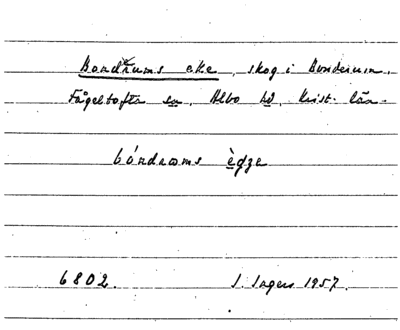 Bondrums eke, skog i Bondrum.
Fågeltofta sn, Albo hd, Krist. län.
bóndroms èǥe
6802. J. Sagers 1957.